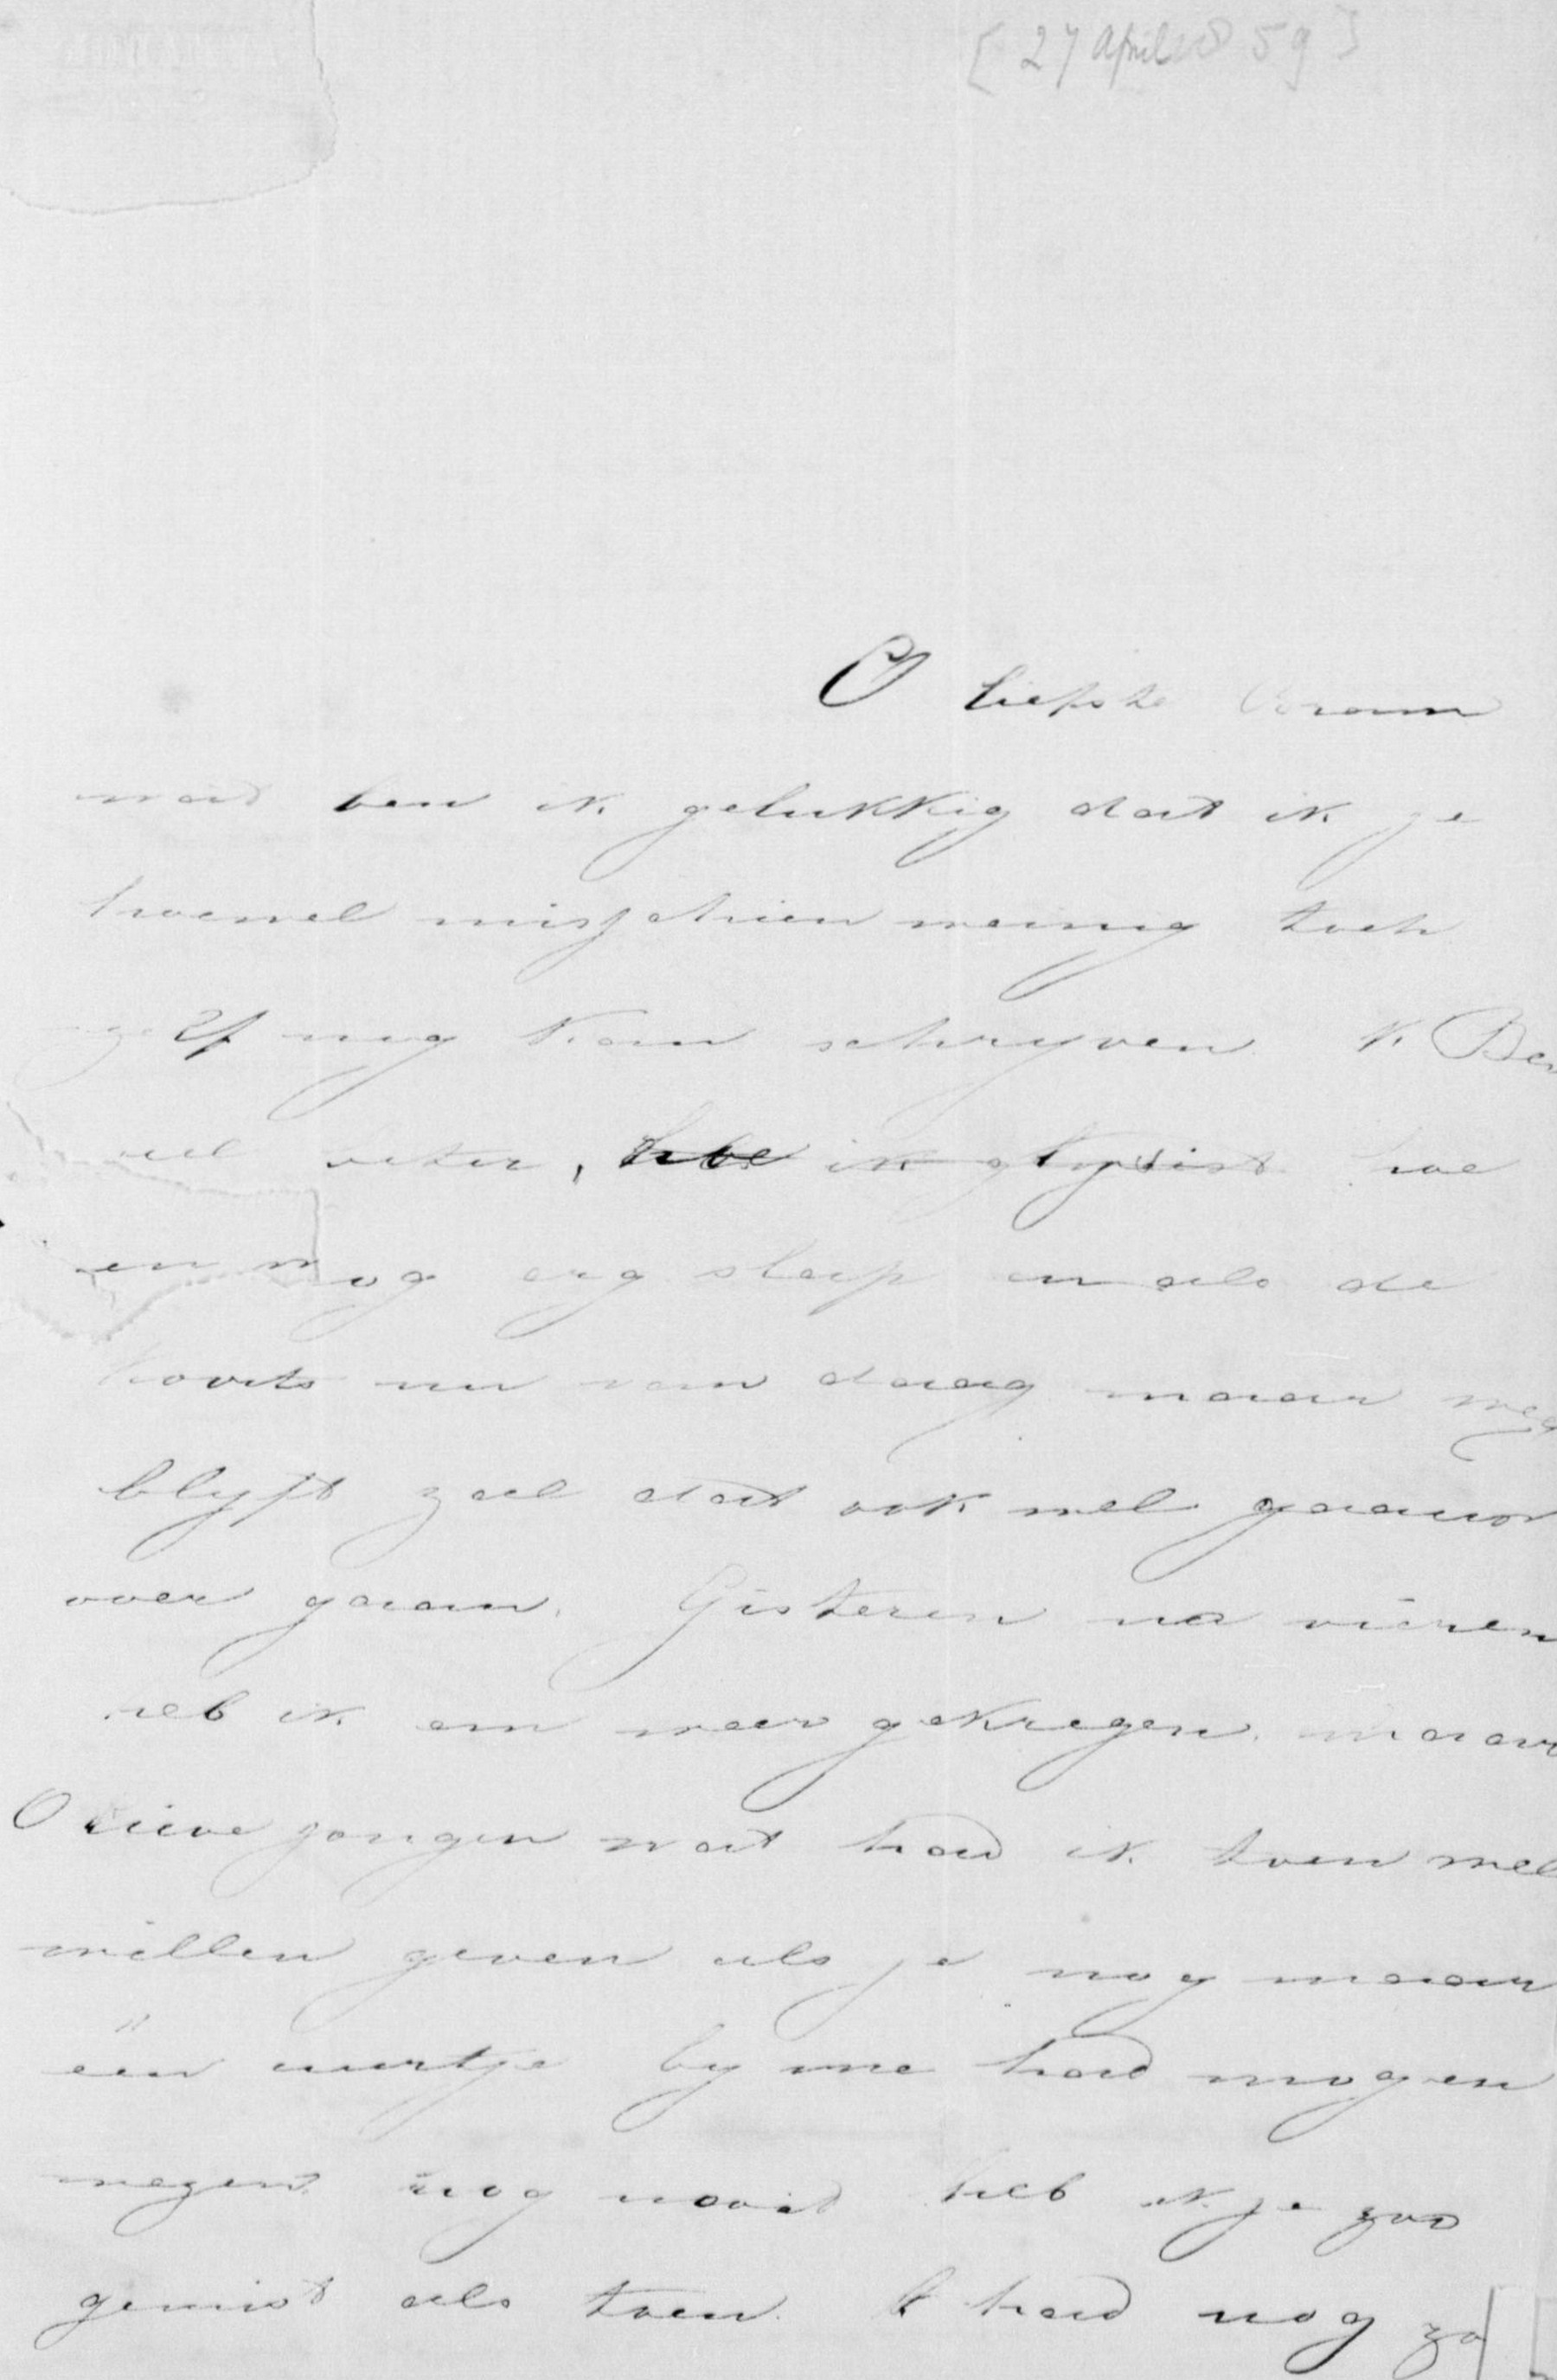 [27 april 1859]
O liefste Bram
wat ben ik gelukkig dat ik je
hoewel misschien weinig toch
zelf nog kan schryven. k Ben
veel beter, hoe ik hoe
en nog erg slap en als de
koorts nu van daag maar weg
blyft zal dat ook wel gaauw
over gaan. Gisteren na vieren
heb ik em weer gekregen. maar
O lieve jongen wat had ik toen wel
willen geven als je nog maar
één uurtje by me had mogen
wezen. nog nooit heb ik je zoo
gemist als toen. k had nog zo